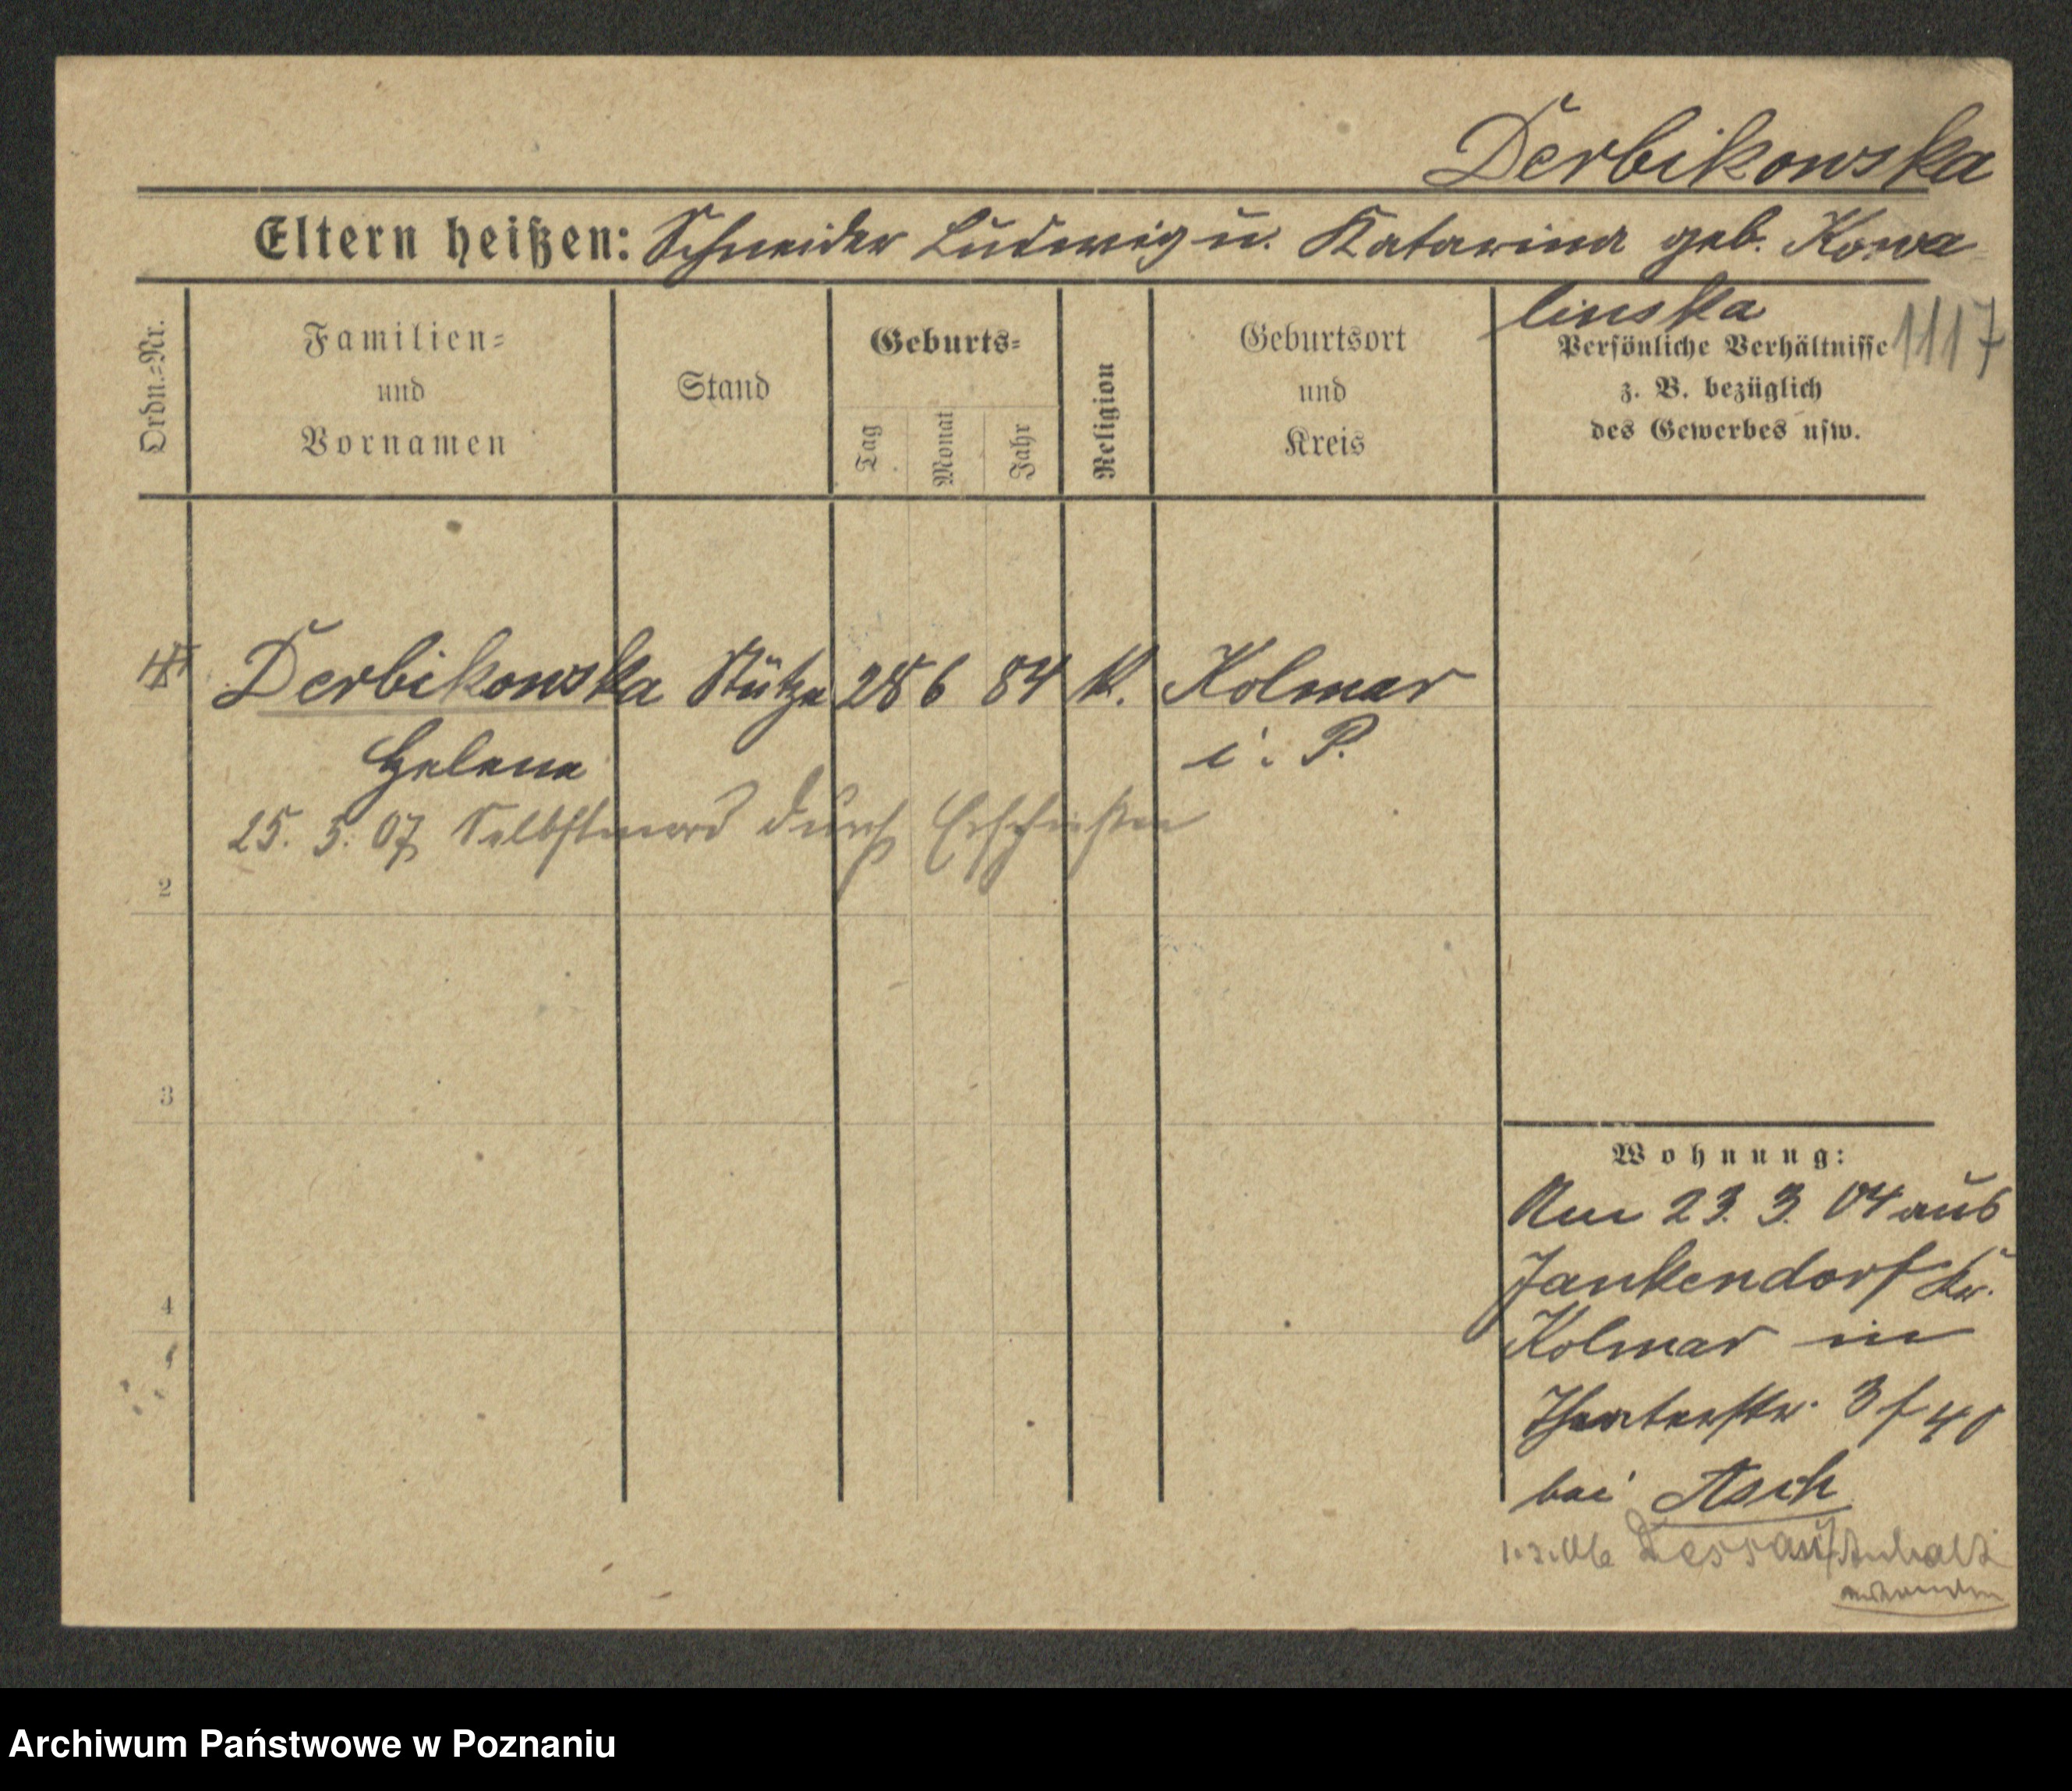 Derbikowska
Eltern heißen: Schneider Ludwig u. Katarina geb. Kowa
linska
1117
Ordn.=Nr.
Familien=
und
Vornamen
Stand
Geburts=
Tag
Monat
Jahr
Religion
Geburtsort
und
Kreis
Persönliche Verhältnisse
z. B. bezüglich
des Gewerbes usw.
Derbikowska Stütze 28 6 84 K. Kolmar
Helene i. P.
25. 5. 07 Selbstmord durch Erschießen
2
3
4
Wohnung:
Am 23. 3. 04 aus
Jankendorf Kr.
Kolmar in
Theaterstr. 3
bei Asch
Dessau Anhalt
Archiwum Państwowe w Poznaniu